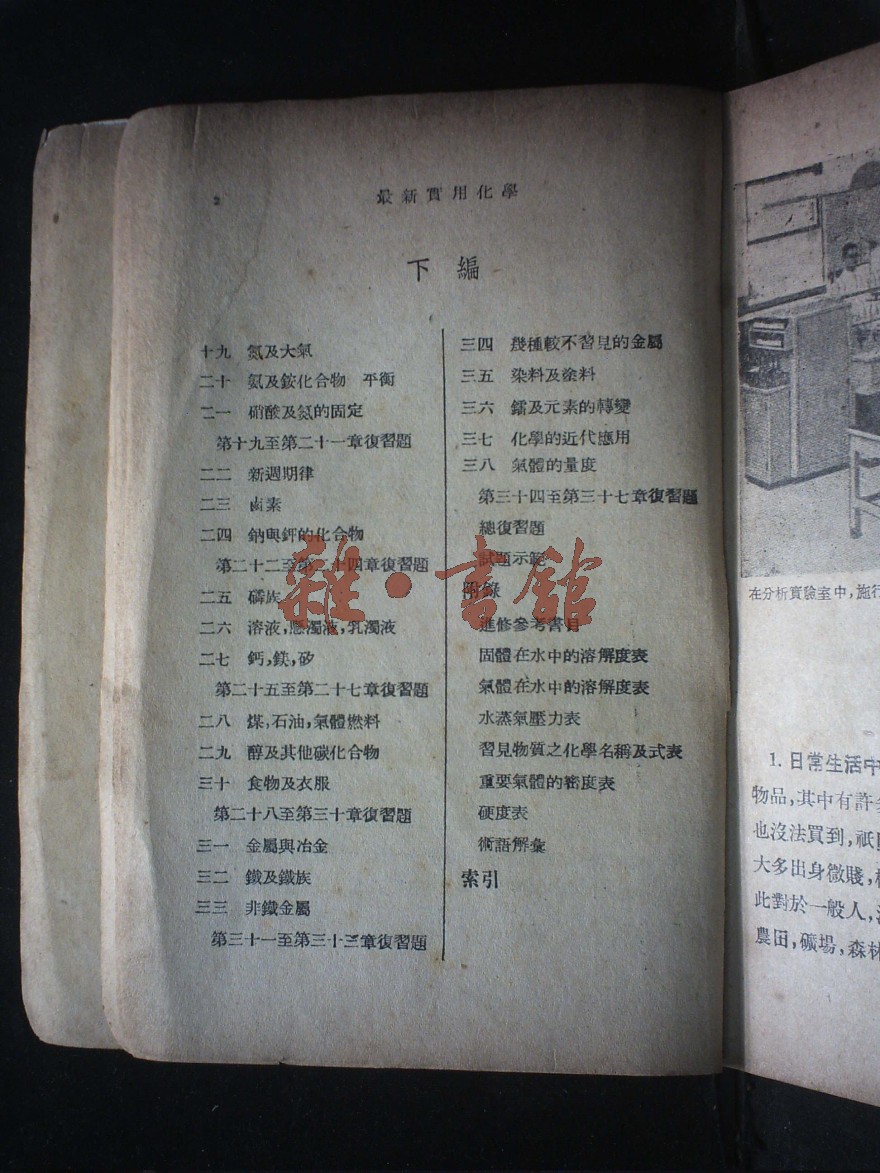 2
最新實用化學
下編
十九 氮及大氣
二十 氨及銨化合物 平衡
二一 硝酸及氮的固定
第十九至第二十一章復習題
二二 新週期律
二三 鹵素
二四 鈉與鉀的化合物
第二十二至第二十四章復習題
二五 磷族
二六 溶液,懸濁液,乳濁液
二七 鈣,鎂,矽
第二十五至第二十七章復習題
二八 煤,石油,氣體燃料
二九 醇及其他碳化合物
三十 食物及衣服
第二十八至第三十章復習題
三一 金屬與冶金
三二 鐵及鐵族
三三 非鐵金屬
第三十一至第三十三章復習題
三四 幾種較不習見的金屬
三五 染料及塗料
三六 鐳及元素的轉變
三七 化學的近代應用
三八 氣體的量度
第三十四至第三十七章復習題
總復習題
試題示範
附錄
進修參考書目
固體在水中的溶解度表
氣體在水中的溶解度表
水蒸氣壓力表
習見物質之化學名稱及式表
重要氣體的密度表
硬度表
術語解彙
索引
雜·書館
在分析實驗室中,施行
1. 日常生活中
物品,其中有許多
也沒法買到,祇
大多出身微賤,
此對於一般人,
農田,礦場,森林